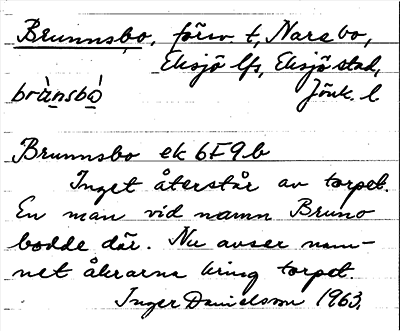 Brunnsbo, försv. t, Narebo,
Eksjö lfs, Eksjö stad,
brὰnsbó Jönk. l
Brunnsbo ek 6F9b
Inget återstår av torpet.
En man vid namn Bruno
bodde där. Nu avser nam-
net åkrarna kring torpet.
Inger Danielsson 1963.